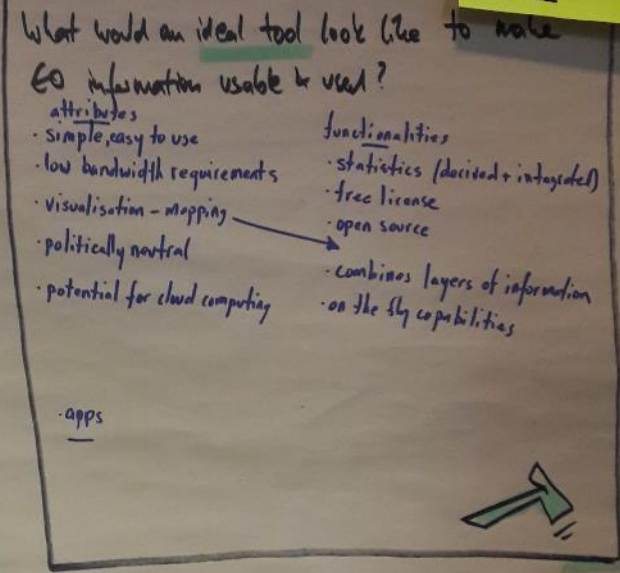 What would an ideal tool look like to make
EO information usable & used?
attributes
· simple, easy to use
· low bandwidth requirements
· visualisation - mapping
· politically neutral
· potential for cloud computing
· apps
functionalities
· statistics (derived + integrated)
· free license
· open source
· combines layers of information
· on the fly capabilities